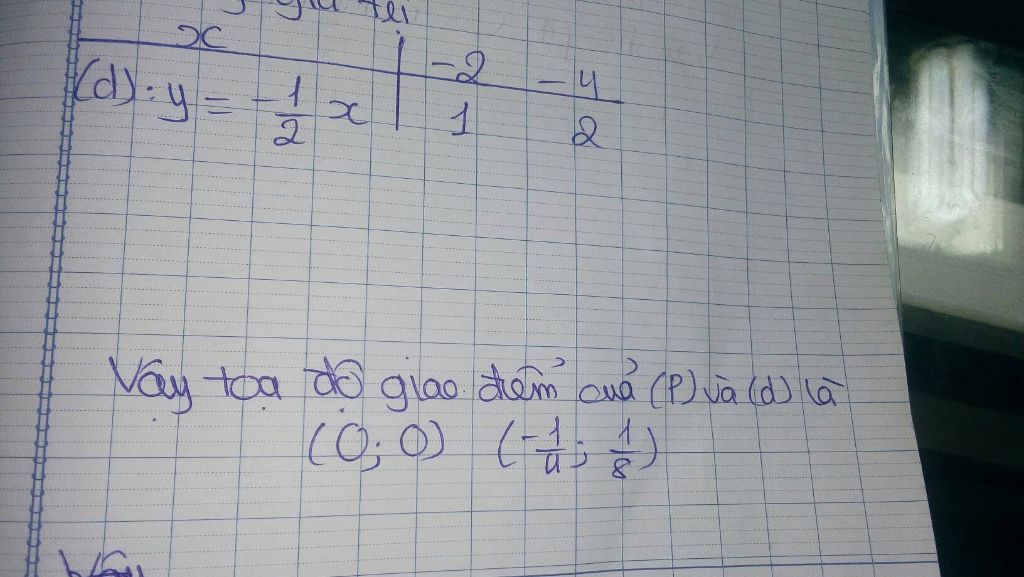 giá trị
x | -2 -4
(d): y = -1/2 x | 1 2
Vậy tọa độ giao điểm của (P) và (d) là
(0; 0) (-1/4; 1/8)
Vậy